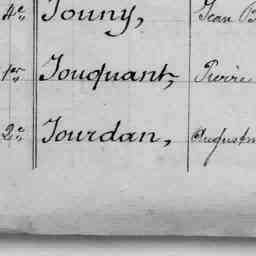 4e Jouny, Jean B
1er Jouquant, Pierre
2e Jourdan, August